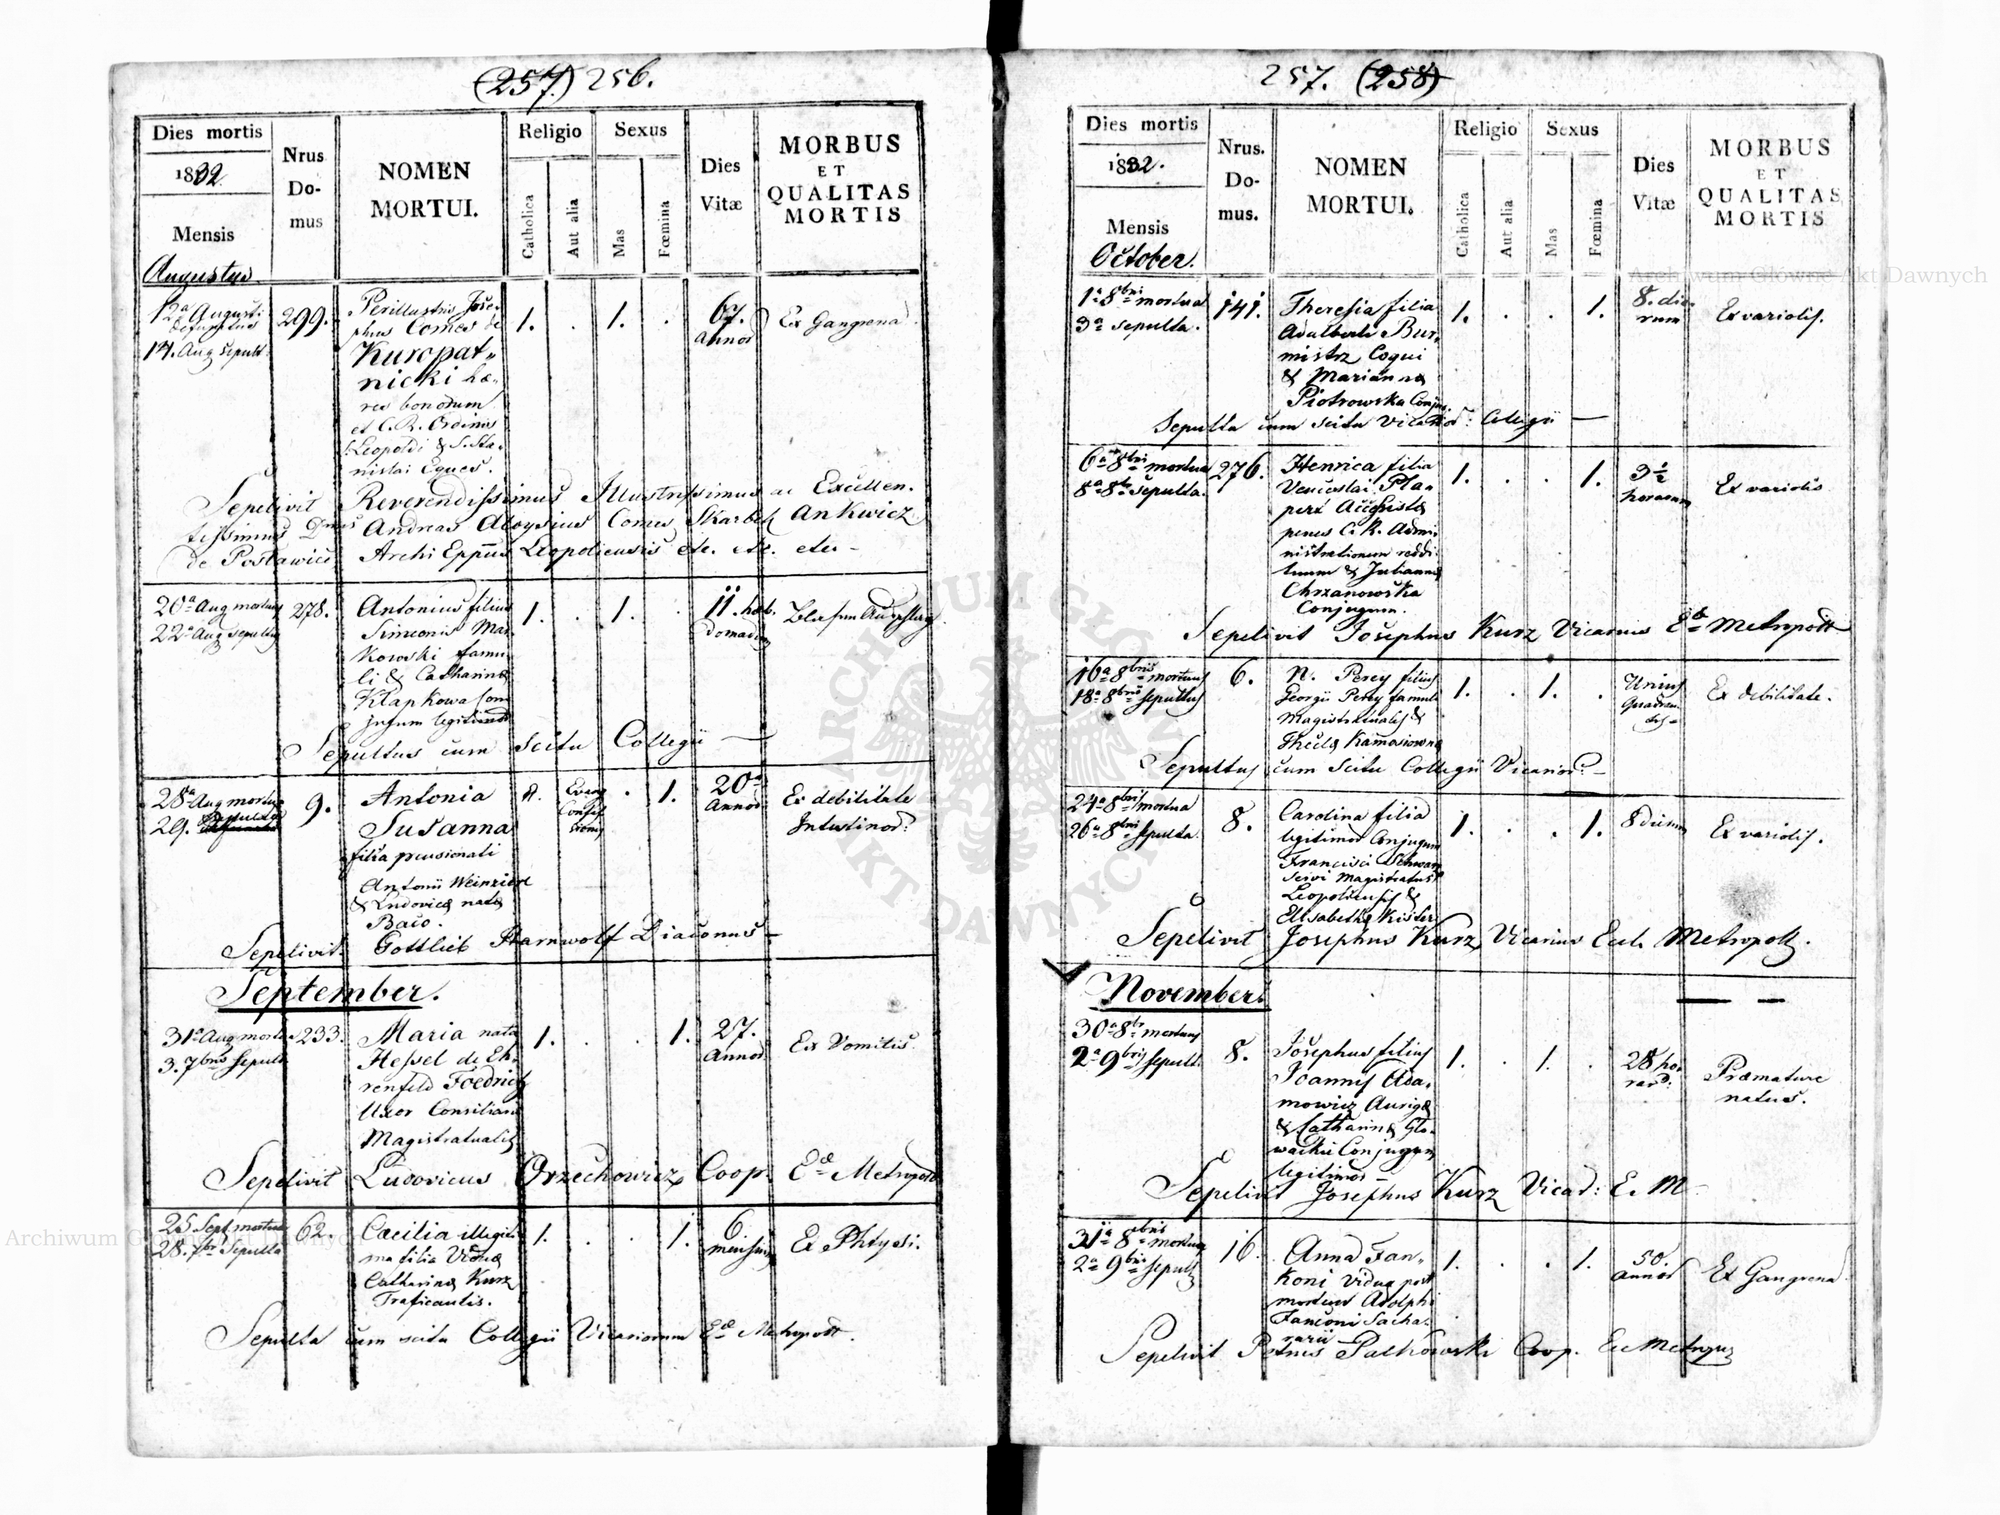 (257.) 256.
Dies mortis
1832.
Mensis
Augustus
Nrus
Do-
mus
NOMEN
MORTUI.
Religio
Catholica
Aut alia
Sexus
Mas
Fœmina
Dies
Vitæ
MORBUS
ET
QUALITAS
MORTIS
12a Augusti
defunctus
14. Aug sepult.
299.
Perillustris Jose-
phus Comes de
Kuropat-
nicki hæ-
res bonorum
et C. R. Ordinis
Leopoldi & S. Sta-
nislai Eques.
1. . 1. .
67.
Annor
Ex Gangrena.
Sepelivit Reverendissimus Illustrissimus ac Excellen-
tissimus Dnus Andreas Aloysius Comes Skarbek Ankwicz
de Postawice Archi Eppus Leopoliensis etc. etc. etc. -
20a Aug mortuus
22a Aug sepultus
278.
Antonius filius
Simeonis Mar-
kowski famu-
li & Catharinæ
Klapkowa Con-
jugum legitimor
1. . 1. .
11. heb-
domadum
Sepultus cum scitu Collegii —
28a Aug mortua
29. sepulta
9.
Antonia
Susanna
filia pensionati
Antonii Weinzierl
& Ludovicæ nata
Baco.
Evang
Confes
sionis
. 1.
20a
Annor
Ex debilitate
Intestinor:
Sepelivit Gottlieb Diaconus —
September.
31a Aug mort.
3. 7bris Sepult.
233.
Maria nata
Hessel de Eh-
renfeld Foedrich
Uxor Consiliarii
Magistratualis
1. . . 1.
27.
Annor
Ex Vomitis.
Sepelivit Ludovicus Orzechowicz Coop. Eæ Metropolit
25 Sept mortua
28. 7br Sepulta
62.
Cæcilia illegiti-
ma filia Viduæ
Catharinæ Kurz
Traficantis.
1. . . 1.
6
mensium
Ex Phtysi.
Sepulta cum scitu Collegii Vicariorum Eæ Metropolit.
257. (258)
Dies mortis
1832.
Mensis
October.
Nrus.
Do-
mus.
NOMEN
MORTUI.
Religio
Catholica
Aut alia
Sexus
Mas
Fœmina
Dies
Vitæ
MORBUS
ET
QUALITAS
MORTIS
1a 8bris mortua
3a sepulta.
141.
Theresia filia
Adalberti Bur-
mistrz Coqui
& Marianna
Piotrowska Conju.
1. . . 1.
8. die-
rum
Ex variolis.
Sepulta cum scitu Vicarior: Collegii —
6a 8bris mortua
8a 8br sepulta.
276.
Henrica filia
Venceslai
penes C. R. Admi-
nistrationem reddi-
tuum & Julianna
Chrzanowska
Conjugum.
1. . . 1.
3½
horarum
Ex variolis
Sepelivit Josephus Kurz Vicarius Eæ Metropolit
16a 8bris mortuus
18a 8bris sepultus
6.
N. Percy filius
Georgii Percy famuli
Magistratualis &
Theclæ
1. . 1. .
Unius
Ex debilitate.
Sepultus cum Scitu Collegii Vicarior: —
24a 8bris mortua
26a 8bris sepulta
8.
Carolina filia
legitimor Conjugum
Francisci Schwarz
Servi Magistratus
Leopoliensis &
Elisabethæ Kister
1. . . 1.
8 dierum
Ex variolis.
Sepelivit Josephus Kurz, Vicarius Eccl. Metropolit.
November.
30a 8br mortuus
2a 9bris sepult.
8.
Josephus filius
Joannis Ada-
mowicz Aurigæ
& Catharinæ Glo-
wacki Conjugum
legitimor —
1. . 1. .
28 ho-
rar:
Præmature
natus.
Sepelivit Josephus Kurz Vicar: E. M-
31a 8bris mortua
2a 9bris sepulta
16.
Anna Fan-
koni vidua post
mortem Adolphi
Fanconi Sacha-
rarii
1. . . 1.
50.
annor
Ex Gangrena.
Sepelivit Petrus Coop. Ec Metropol
Archiwum Główne Akt Dawnych
Archiwum Główne Akt Dawnych
ARCHIWUM GŁÓWNE AKT DAWNYCH